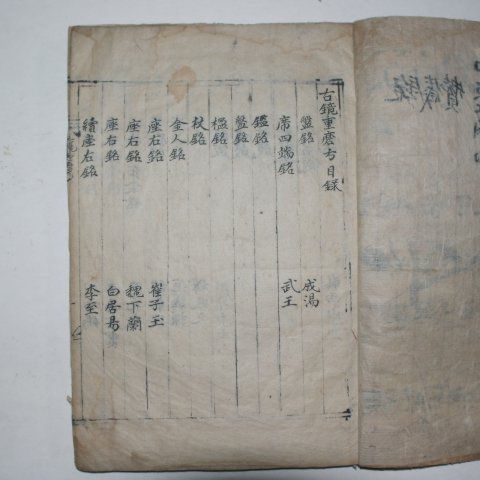 古鏡重磨方目録
盤銘 成湯
席四端銘 武王
鑑銘
盤銘
楹銘
杖銘
金人銘
座右銘 崔子玉
座右銘 魏卞蘭
座右銘 白居易
續座右銘 李至